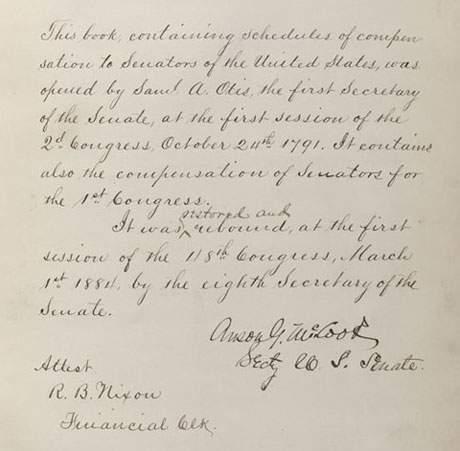 This book, containing schedules of compen
sation to Senators of the United States, was
opened by Saml. A. Otis, the first Secretary
of the Senate, at the first session of the
2d. Congress, October 24th 1791. It contains
also the compensation of Senators for
the 1st Congress.
restored and
It was ^ rebound, at the first
session of the 48th Congress, March
1st 1884, by the eighth Secretary of the
Senate.
Anson G. McCook
Secty U. S. Senate.
Attest
R. B. Nixon
Financial Clk.